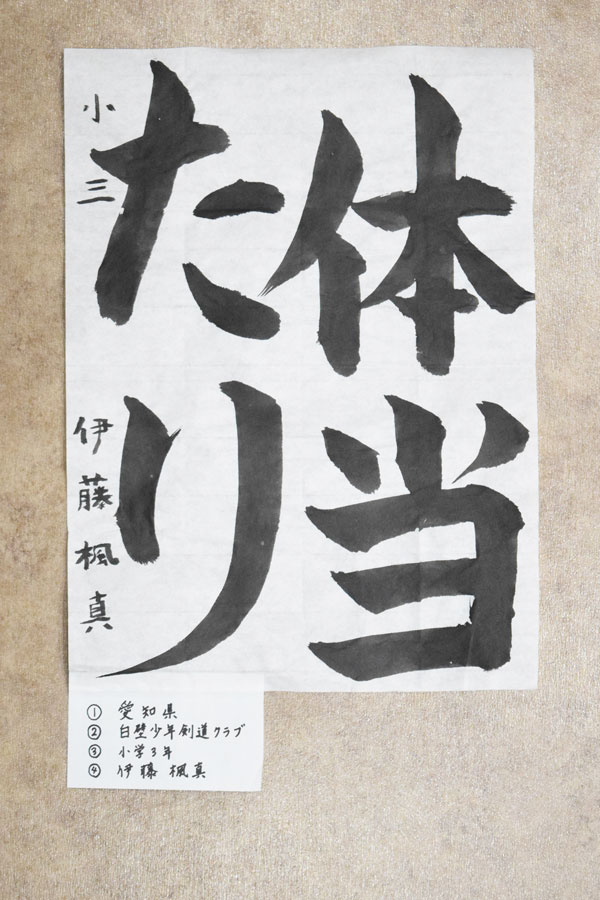 体当
たり
小三
伊藤楓真
① 愛知県
② 白壁少年剣道クラブ
③ 小学3年
④ 伊藤 楓真